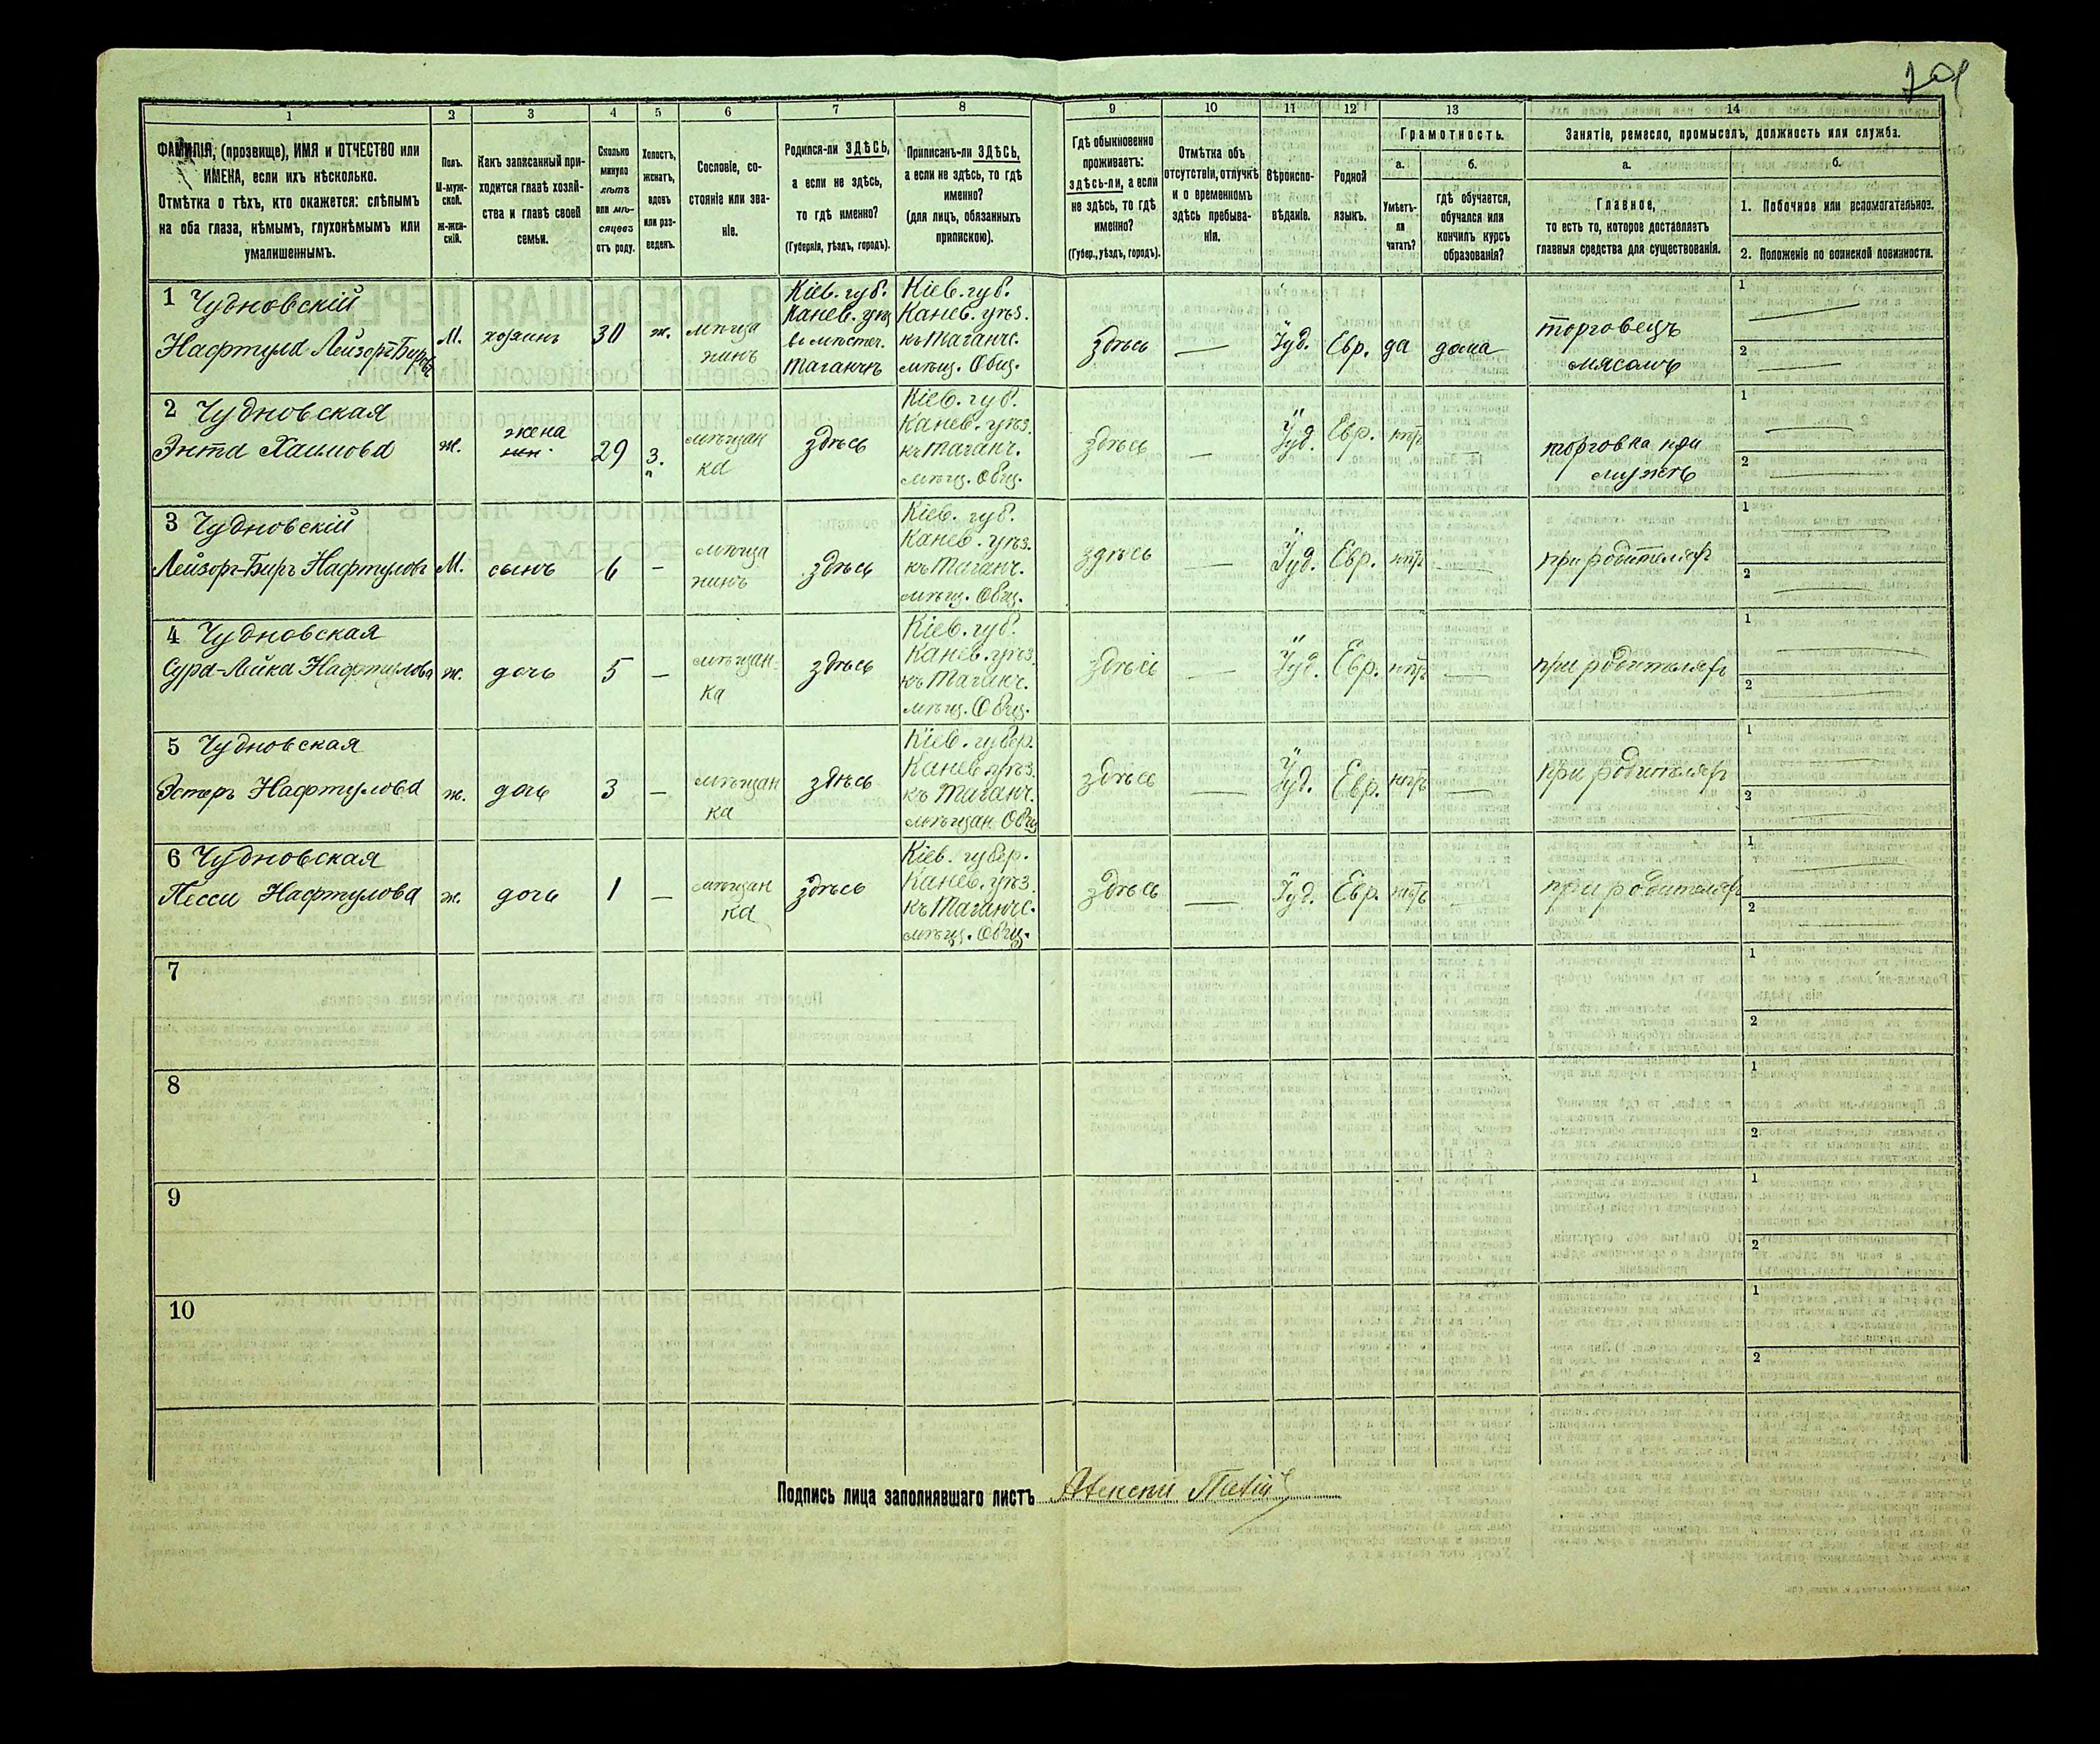 701
1 2 3 4 5 6 7 8 9 10 11 12 13 14
ФАМИЛІЯ, (прозвище), ИМЯ и ОТЧЕСТВО или
ИМЕНА, если ихъ нѣсколько.
Отмѣтка о тѣхъ, кто окажется: слѣпымъ
на оба глаза, нѣмымъ, глухонѣмымъ или
умалишеннымъ.
Полъ.
М-муж-
ской.
ж-жен-
скій.
Какъ записанный при-
ходится главѣ хозяй-
ства и главѣ своей
семьи.
Сколько
минуло
лѣтъ
или мѣ-
сяцевъ
отъ роду.
Холостъ,
женатъ,
вдовъ
или раз-
веденъ.
Сословіе, со-
стояніе или зва-
ніе.
Родился-ли ЗДѢСЬ,
а если не здѣсь,
то гдѣ именно?
(Губернія, уѣздъ, городъ).
Приписанъ-ли ЗДѢСЬ,
а если не здѣсь, то гдѣ
именно?
(для лицъ, обязанныхъ
припискою).
Гдѣ обыкновенно
проживаетъ:
здѣсь-ли, а если
не здѣсь, то гдѣ
именно?
(Губер., уѣздъ, городъ).
Отмѣтка объ
отсутствіи, отлучкѣ
и о временномъ
здѣсь пребыва-
ніи.
Вѣроиспо-
вѣданіе.
Родной
языкъ.
Грамотность.
а. б.
Умѣетъ-
ли
читать?
гдѣ обучается,
обучался или
кончилъ курсъ
образованія?
Занятіе, ремесло, промыселъ, должность или служба.
а. б.
Главное,
то есть то, которое доставляетъ
главныя средства для существованія.
1. Побочное или вспомогательное.
2. Положеніе по воинской повинности.
1 Чудновскій
Нафтула Лейзоръ-Бировъ
М. хозяинъ 30 ж. мѣща
нинъ
Кіев. губ.
Канев. уѣз
въ мѣстеч.
Таганчѣ
Кіев. губ.
Канев. уѣз.
къ Таганчс.
мѣщ. Общ.
здѣсь — Іуд. Евр. да дома
торговецъ
мясомъ
1 —
2 —
2 Чудновская
Энта Хаимова
ж. жена 29 З.
мѣщан
ка
здѣсь
Кіев. губ.
Канев. уѣз.
къ Таганч.
мѣщ. Общ.
здѣсь — Іуд. Евр. нѣтъ
торговка при
мужѣ
1 —
2 —
3 Чудновскій
Лейзоръ-Биръ Нафтуловъ
М. сынъ 6 — мѣща
нинъ
здѣсь
Кіев. губ.
Канев. уѣз.
къ Таганч.
мѣщ. Общ.
здѣсь — Іуд. Евр. нѣтъ —
при родителяхъ
1 —
2 —
4 Чудновская
Сура-Лейка Нафтулова
ж. дочь 5 — мѣщан-
ка
здѣсь
Кіев. губ.
Канев. уѣз.
къ Таганч.
мѣщ. Общ.
здѣсь — Іуд. Евр. нѣтъ —
при родителяхъ
1 —
2 —
5 Чудновская
Эстеръ Нафтулова
ж. дочь 3 — мѣщан
ка
здѣсь
Кіев. губер.
Канев. уѣз.
къ Таганч.
мѣщан. Общ
здѣсь — Іуд. Евр. нѣтъ —
при родителяхъ
1 —
2 —
6 Чудновская
Песси Нафтулова
ж. дочь 1 — мѣщан
ка
здѣсь
Кіев. губер.
Канев. уѣз.
къ Таганчс.
мѣщ. Общ.
здѣсь — Іуд. Евр. нѣтъ —
при родителяхъ
1 —
2 —
7
1
2
8
1
2
9
1
2
10
1
2
Подпись лица заполнявшаго листъ Алексѣй